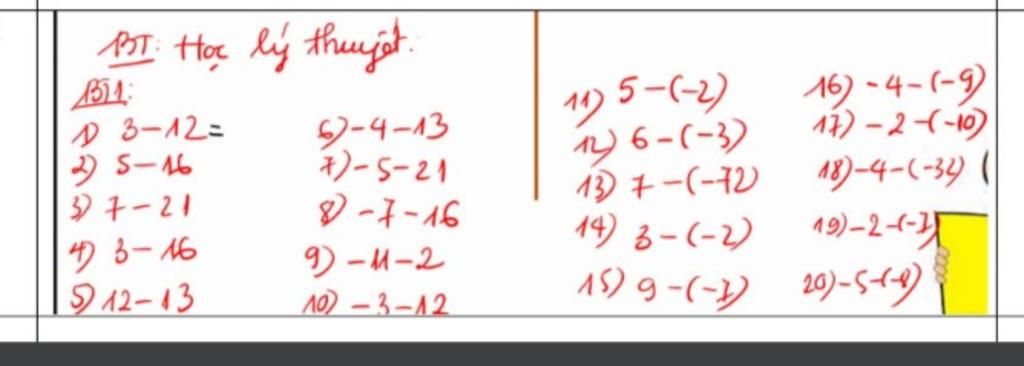 BT: Học lý thuyết.
BT1:
1) 3-12=
2) 5-16
3) 7-21
4) 3-16
5) 12-13
6) -4-13
7) -5-21
8) -7-16
9) -11-2
10) -3-12
11) 5-(-2)
12) 6-(-3)
13) 7-(-72)
14) 3-(-2)
15) 9-(-7)
16) -4-(-9)
17) -2-(-10)
18) -4-(-32)
19) -2-(-7)
20) -5-(-8)